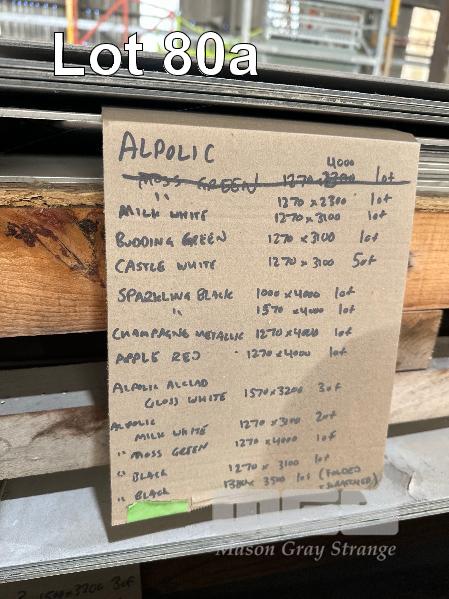 Lot 80a
ALPOLIC
4000
MOSS GREEN 1270 x 2300 1of
" 1270 x 2300 1of
MILK WHITE 1270 x 3100 1of
BUDDING GREEN 1270 x 3100 1of
CASTLE WHITE 1270 x 3100 5of
SPARKLING BLACK 1000 x 4000 1of
" 1570 x 4000 1of
CHAMPAGNE METALLIC 1270 x 4000 1of
APPLE RED 1270 x 4000 1of
ALPOLIC ALCLAD
GLOSS WHITE 1570 x 3200 3of
ALPOLIC
MILK WHITE 1270 x 3100 2of
" MOSS GREEN 1270 x 4000 1of
" BLACK 1270 x 3100 1of
" BLACK 1380 x 3500 1of (FOLDED
+ SCRATCHED)
Mason Gray Strange
1570 x 3200 3of